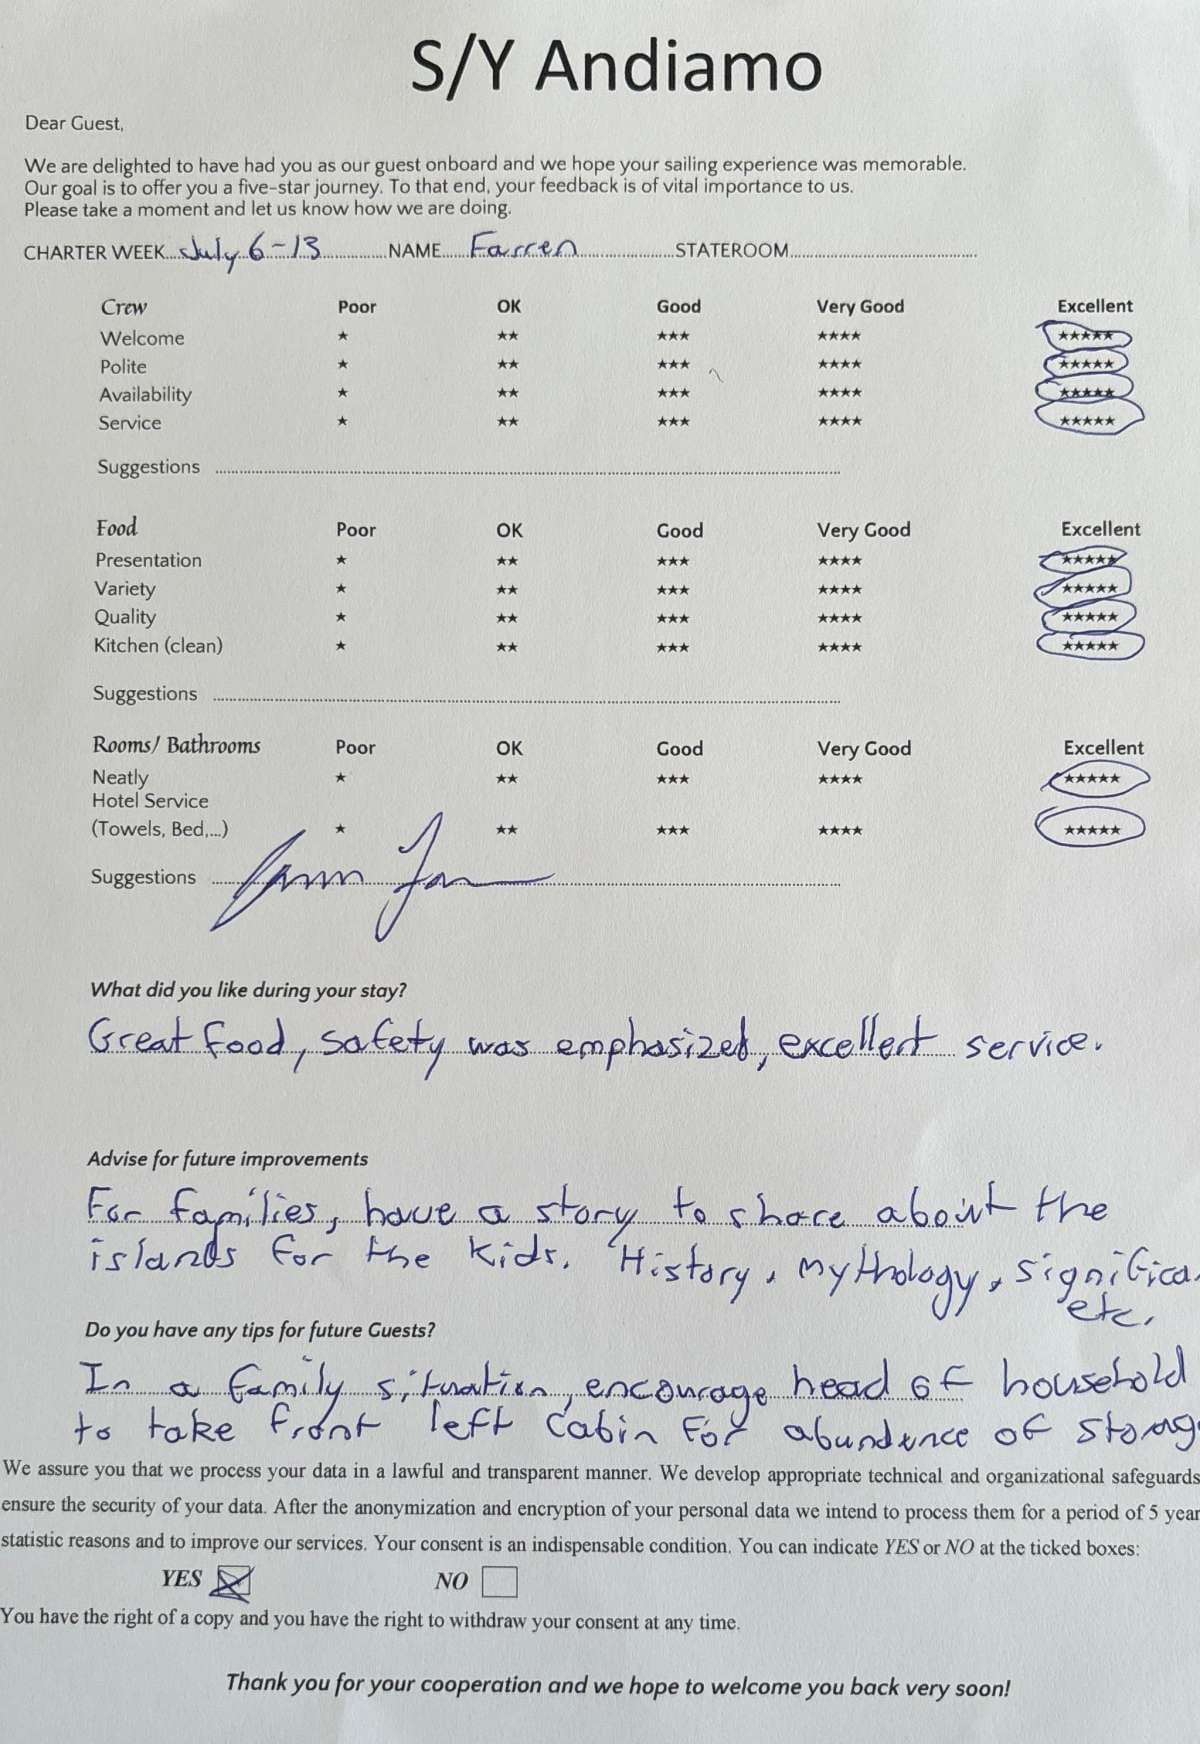 S/Y Andiamo
Dear Guest,
We are delighted to have had you as our guest onboard and we hope your sailing experience was memorable.
Our goal is to offer you a five-star journey. To that end, your feedback is of vital importance to us.
Please take a moment and let us know how we are doing.
CHARTER WEEK July 6-13 NAME Farren STATEROOM
Crew Poor OK Good Very Good Excellent
Welcome ★ ★★ ★★★ ★★★★ ★★★★★
Polite ★ ★★ ★★★ ★★★★ ★★★★★
Availability ★ ★★ ★★★ ★★★★ ★★★★★
Service ★ ★★ ★★★ ★★★★ ★★★★★
Suggestions
Food Poor OK Good Very Good Excellent
Presentation ★ ★★ ★★★ ★★★★ ★★★★★
Variety ★ ★★ ★★★ ★★★★ ★★★★★
Quality ★ ★★ ★★★ ★★★★ ★★★★★
Kitchen (clean) ★ ★★ ★★★ ★★★★ ★★★★★
Suggestions
Rooms/ Bathrooms Poor OK Good Very Good Excellent
Neatly ★ ★★ ★★★ ★★★★ ★★★★★
Hotel Service
(Towels, Bed,...) ★ ★★ ★★★ ★★★★ ★★★★★
Suggestions
What did you like during your stay?
Great food, safety was emphasized, excellent service.
Advise for future improvements
For families, have a story to share about the
islands for the kids. History, mythology, significa
etc.
Do you have any tips for future Guests?
In a family situation, encourage head of household
to take front left cabin for abundence of storag
We assure you that we process your data in a lawful and transparent manner. We develop appropriate technical and organizational safeguards
ensure the security of your data. After the anonymization and encryption of your personal data we intend to process them for a period of 5 year
statistic reasons and to improve our services. Your consent is an indispensable condition. You can indicate YES or NO at the ticked boxes:
YES NO
You have the right of a copy and you have the right to withdraw your consent at any time.
Thank you for your cooperation and we hope to welcome you back very soon!